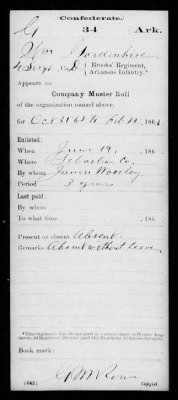 Confederate.
G 34 Ark.
Wm Gordenhire
4 Sergt, Co. D, Brooks' Regiment,
Arkansas Infantry.*
Appears on
Company Muster Roll
of the organization named above,
for Oct 31 62 to Feb 28, 1863.
Enlisted:
When June 19, 186
Where Sebastian Co.
By whom James
Period 3 years
Last paid:
By whom
To what time , 186
Present or absent Absent
Remarks: Absent without leave
Book mark:
(642) Copyist.